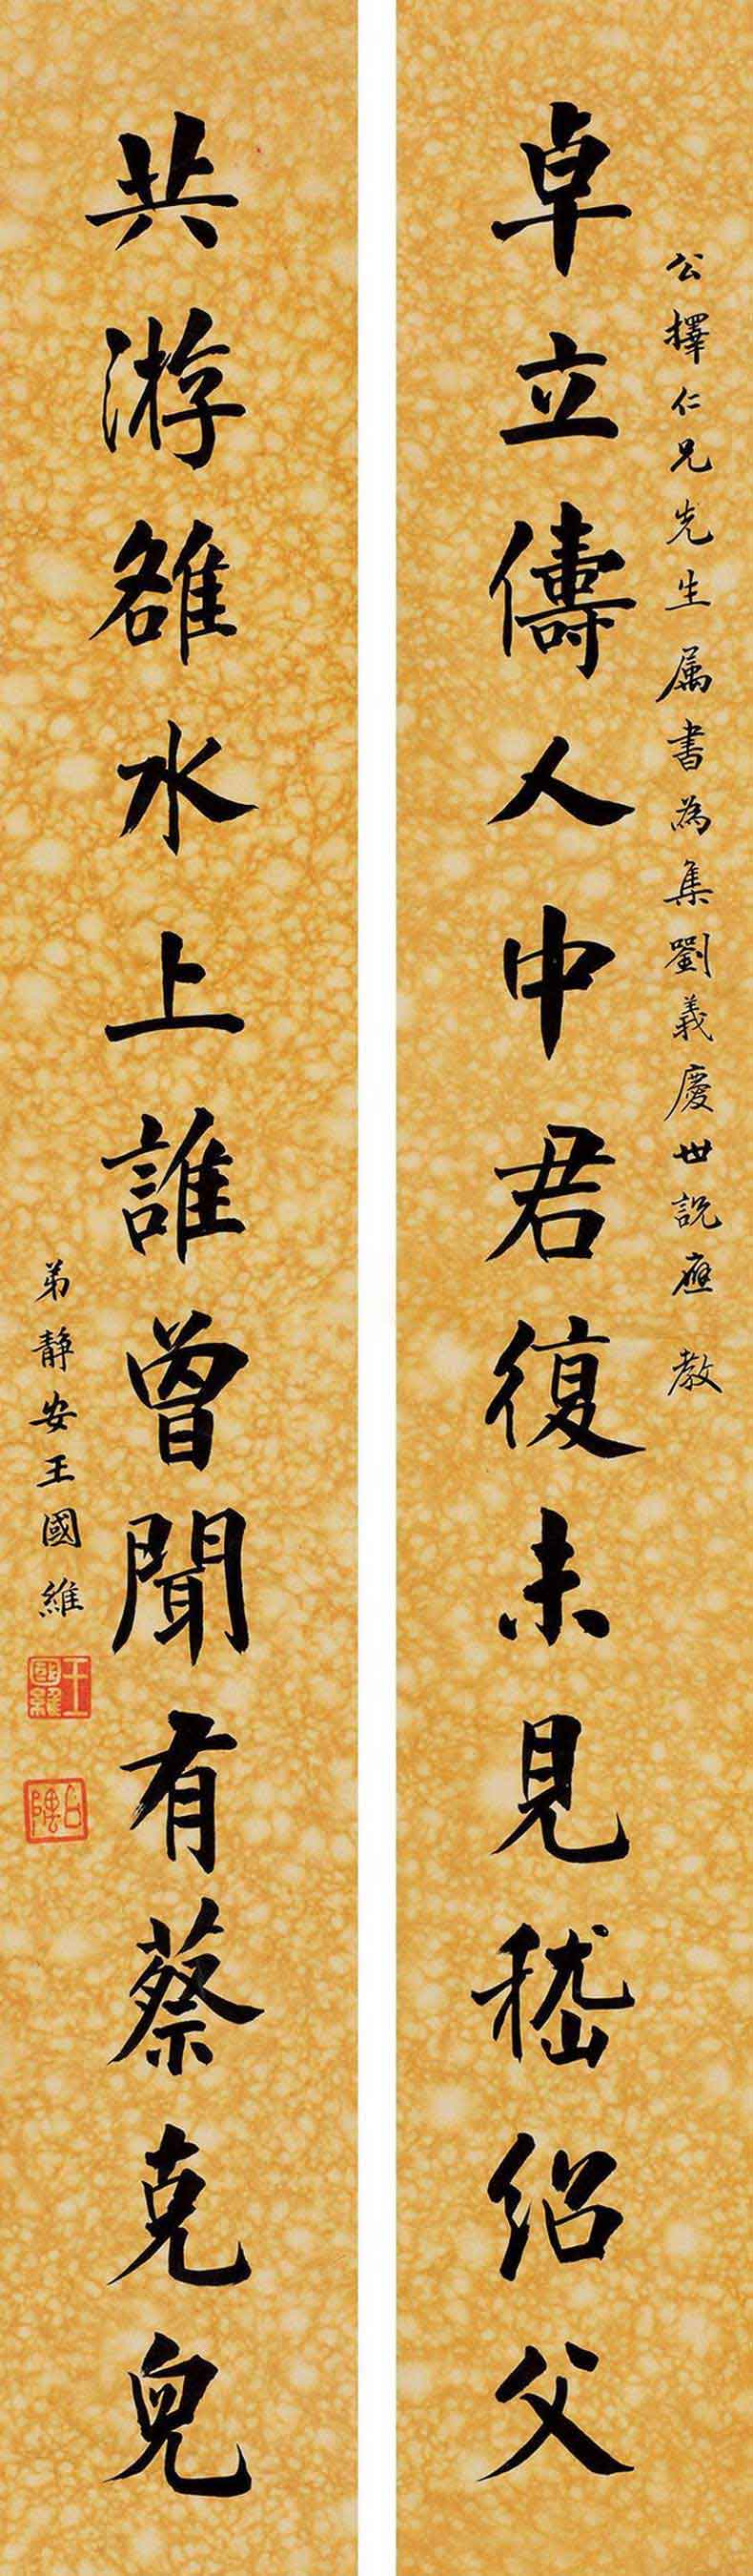 公擇仁兄先生属書為集劉義慶世說應教
卓立儔人中君復未見嵇紹父
共游雒水上誰曾聞有蔡克兒
弟静安王國維
王國維